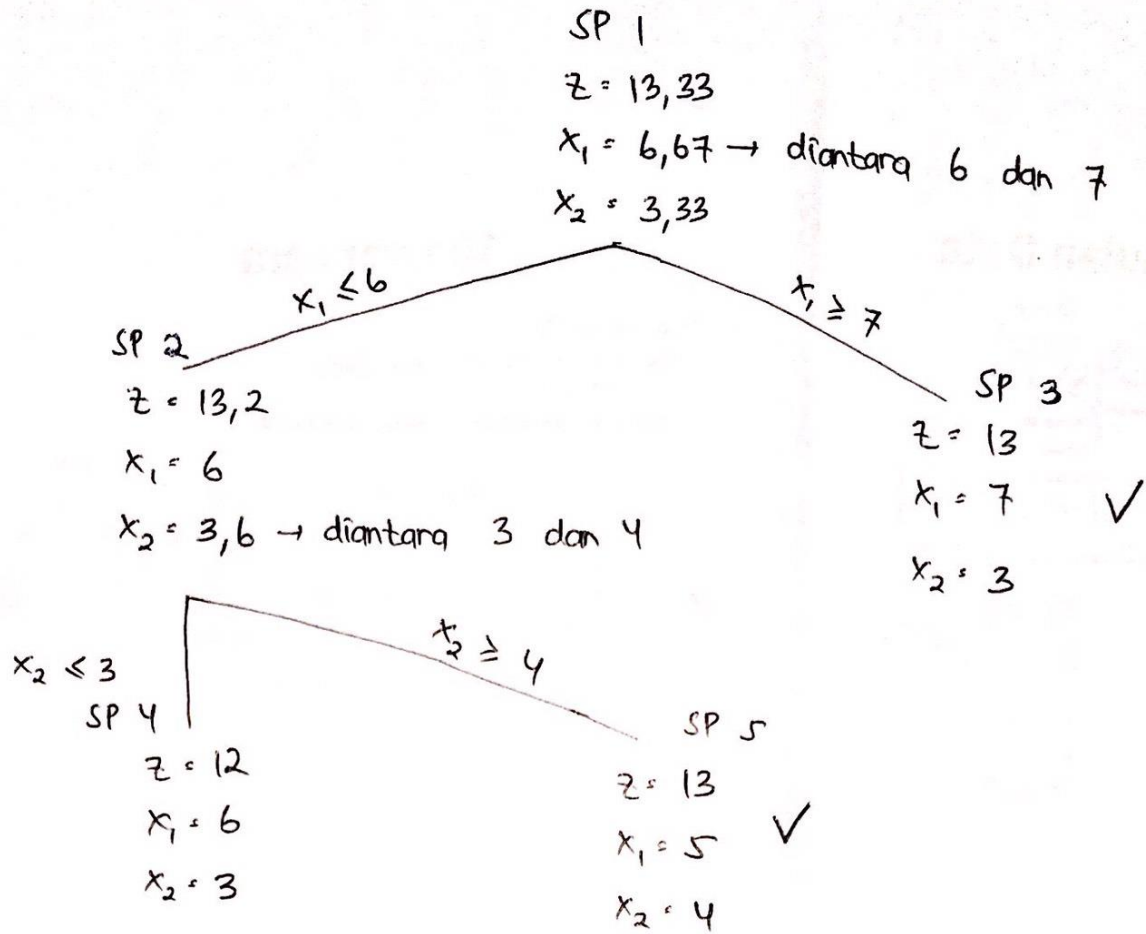 SP 1
Z = 13,33
X₁ = 6,67 → diantara 6 dan 7
X₂ = 3,33
X₁ ≤ 6
X₁ ≥ 7
SP 2
Z = 13,2
X₁ = 6
X₂ = 3,6 → diantara 3 dan 4
SP 3
Z = 13
X₁ = 7 ✓
X₂ = 3
X₂ ≤ 3
X₂ ≥ 4
SP 4
Z = 12
X₁ = 6
X₂ = 3
SP 5
Z = 13
X₁ = 5 ✓
X₂ = 4